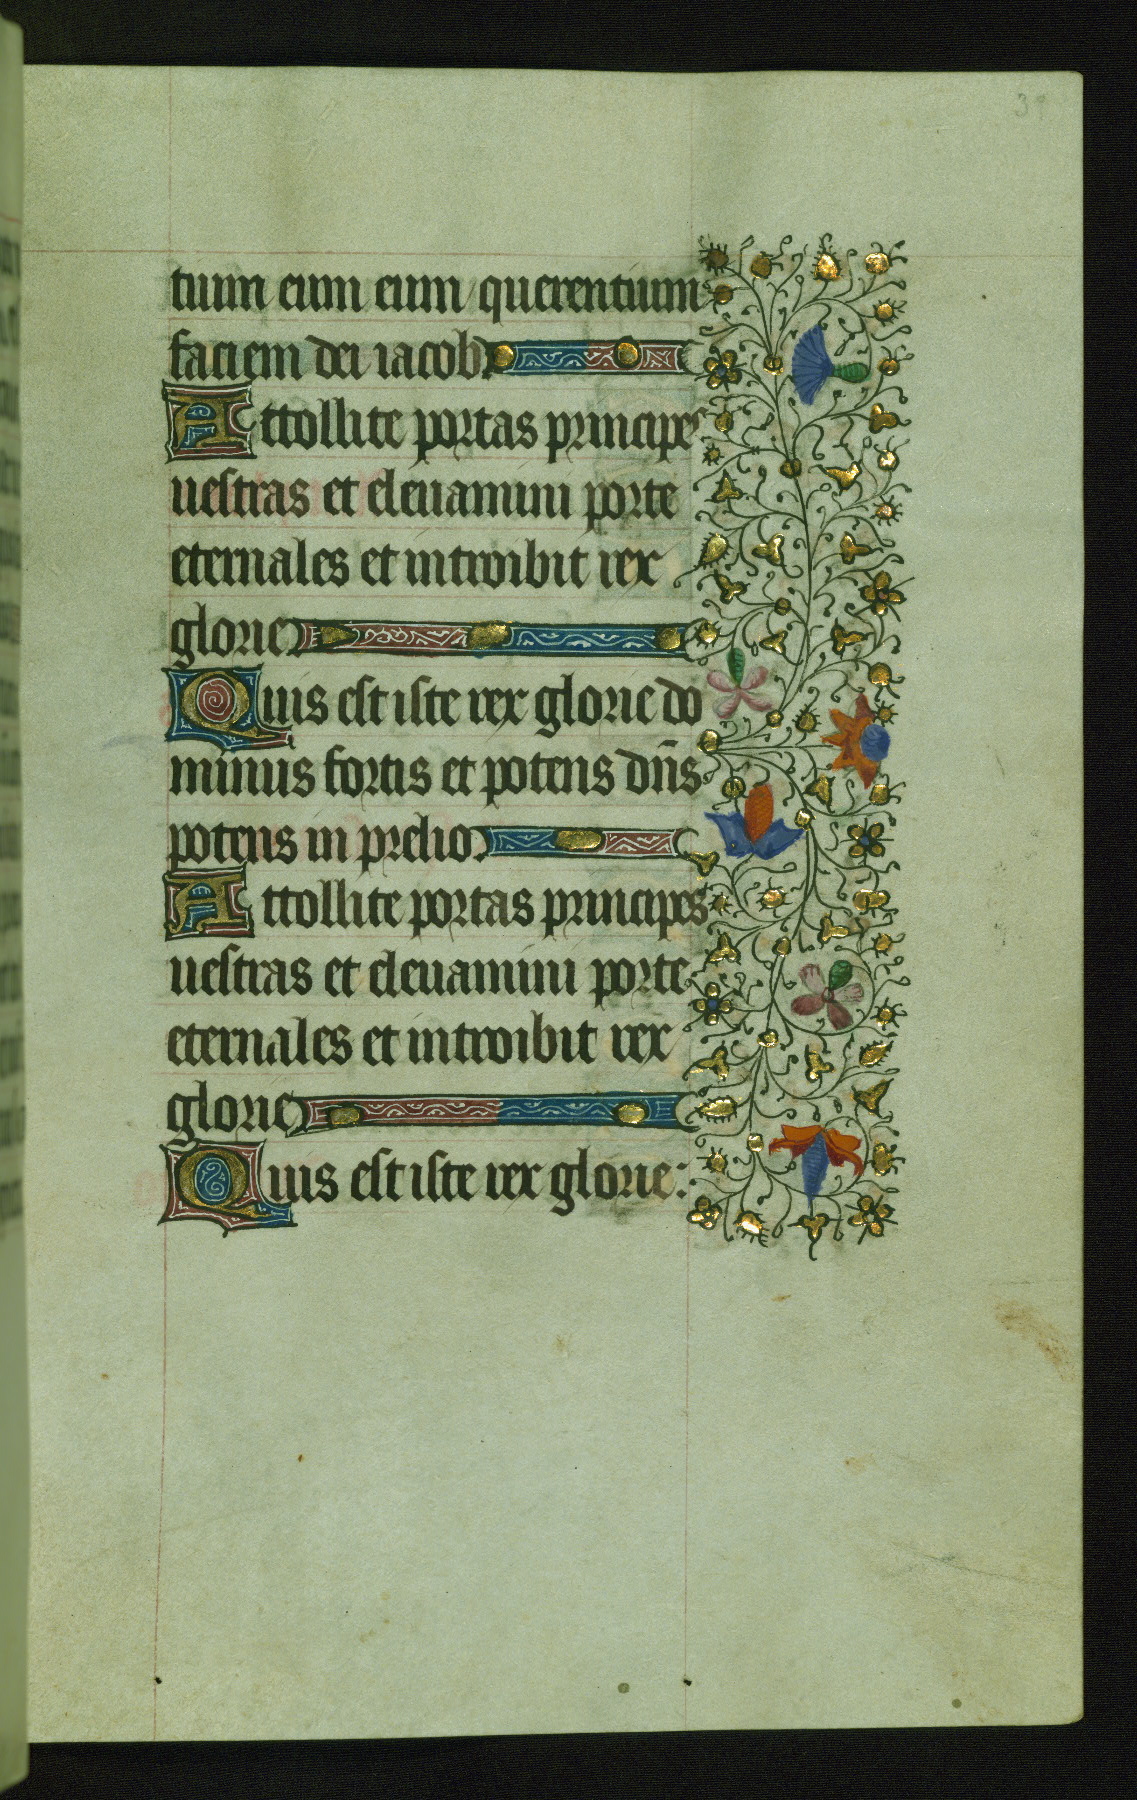 39
tum eum eum querentium
faciem dei iacob.
Attollite portas principes
uestras et eleuamini porte
eternales et introibit rex
glorie.
Quis est iste rex glorie do
minus fortis et potens dn̄s
potens in prelio.
Attollite portas principes
uestras et eleuamini porte
eternales et introibit rex
glorie
Quis est iste rex glorie: